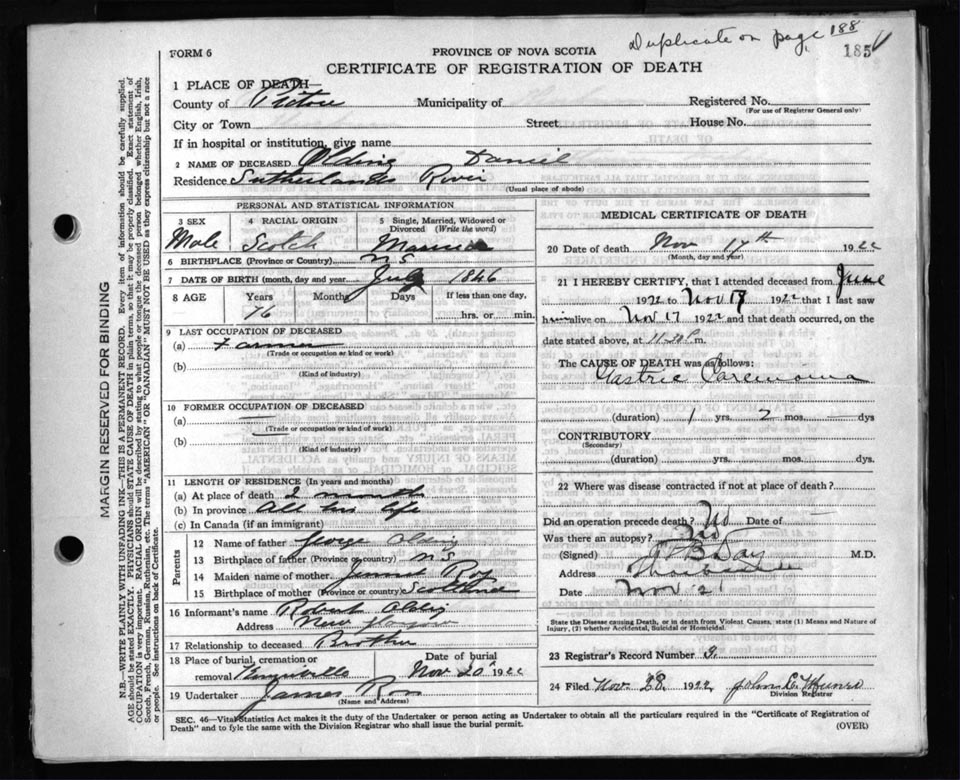 Duplicate on page 188
185
FORM 6
PROVINCE OF NOVA SCOTIA
CERTIFICATE OF REGISTRATION OF DEATH
1 PLACE OF DEATH—
County of Pictou Municipality of Registered No.
(For use of Registrar General only)
City or Town Street House No.
If in hospital or institution, give name
2 NAME OF DECEASED Olding Daniel
Residence Sutherlands River
(Usual place of abode)
PERSONAL AND STATISTICAL INFORMATION
3 SEX 4 RACIAL ORIGIN 5 Single, Married, Widowed or Divorced (Write the word)
Male Scotch Married
6 BIRTHPLACE (Province or Country) N S
7 DATE OF BIRTH (month, day and year) July 1846
8 AGE Years Months Days If less than one day,
76 hrs. or min.
9 LAST OCCUPATION OF DECEASED
(a) Farmer
(Trade or occupation or kind or work)
(b)
(Kind of industry)
10 FORMER OCCUPATION OF DECEASED
(a)
(Trade or occupation or kind or work)
(b)
(Kind of industry)
11 LENGTH OF RESIDENCE (In years and months)
(a) At place of death 2 months
(b) In province all his life
(c) In Canada (if an immigrant)
Parents
12 Name of father George Olding
13 Birthplace of father (Province or country) N.S
14 Maiden name of mother Roy
15 Birthplace of mother (Province or country) Scotland
16 Informant's name Robert Olding
Address New Glasgow
17 Relationship to deceased Brother
18 Place of burial, cremation or Date of burial
removal Nov 20 1922
19 Undertaker James Ross
(Name and Address)
MEDICAL CERTIFICATE OF DEATH
20 Date of death Nov 17th 1922
(Month, day and year)
21 I HEREBY CERTIFY, that I attended deceased from June
1922 to Nov 17 1922 that I last saw
him alive on Nov 17 1922 and that death occurred, on
date stated above, at m.
The CAUSE OF DEATH was as follows:
Gastric Carcinoma
(duration) 1 yrs. 2 mos. — dys
CONTRIBUTORY
(Secondary)
(duration) yrs. mos. dys.
22 Where was disease contracted if not at place of death?
Did an operation precede death? No Date of —
Was there an autopsy? No
(Signed) Day M.D.
Address Thorburn
Date Nov 21
State the Disease causing Death, or in death from Violent Causes, state (1) Means and Nature of
Injury, (2) whether Accidental, Suicidal or Homicidal.
23 Registrar's Record Number 9
24 Filed Nov. 28 1922 John C Munro
Division Registrar
SEC. 46—Vital Statistics Act makes it the duty of the Undertaker or person acting as Undertaker to obtain all the particulars required in the "Certificate of Registration of
Death" and to fyle the same with the Division Registrar who shall issue the burial permit.
(OVER)
MARGIN RESERVED FOR BINDING
N.B.—WRITE PLAINLY WITH UNFADING INK—THIS IS A PERMANENT RECORD. Every item of information should be carefully supplied.
AGE should be stated EXACTLY. PHYSICIANS should STATE CAUSE OF DEATH in plain terms, so that it may be properly classified. Exact statement of
OCCUPATION is very important. RACIAL ORIGIN will be described by stating to what people or tongue the deceased person belonged whether English, Irish,
Scotch, French, German, Russian, Ruthenian, etc. The terms "AMERICAN" OR "CANADIAN" MUST NOT BE USED as they express citizenship but not a race
or people. See instructions on back of Certificate.